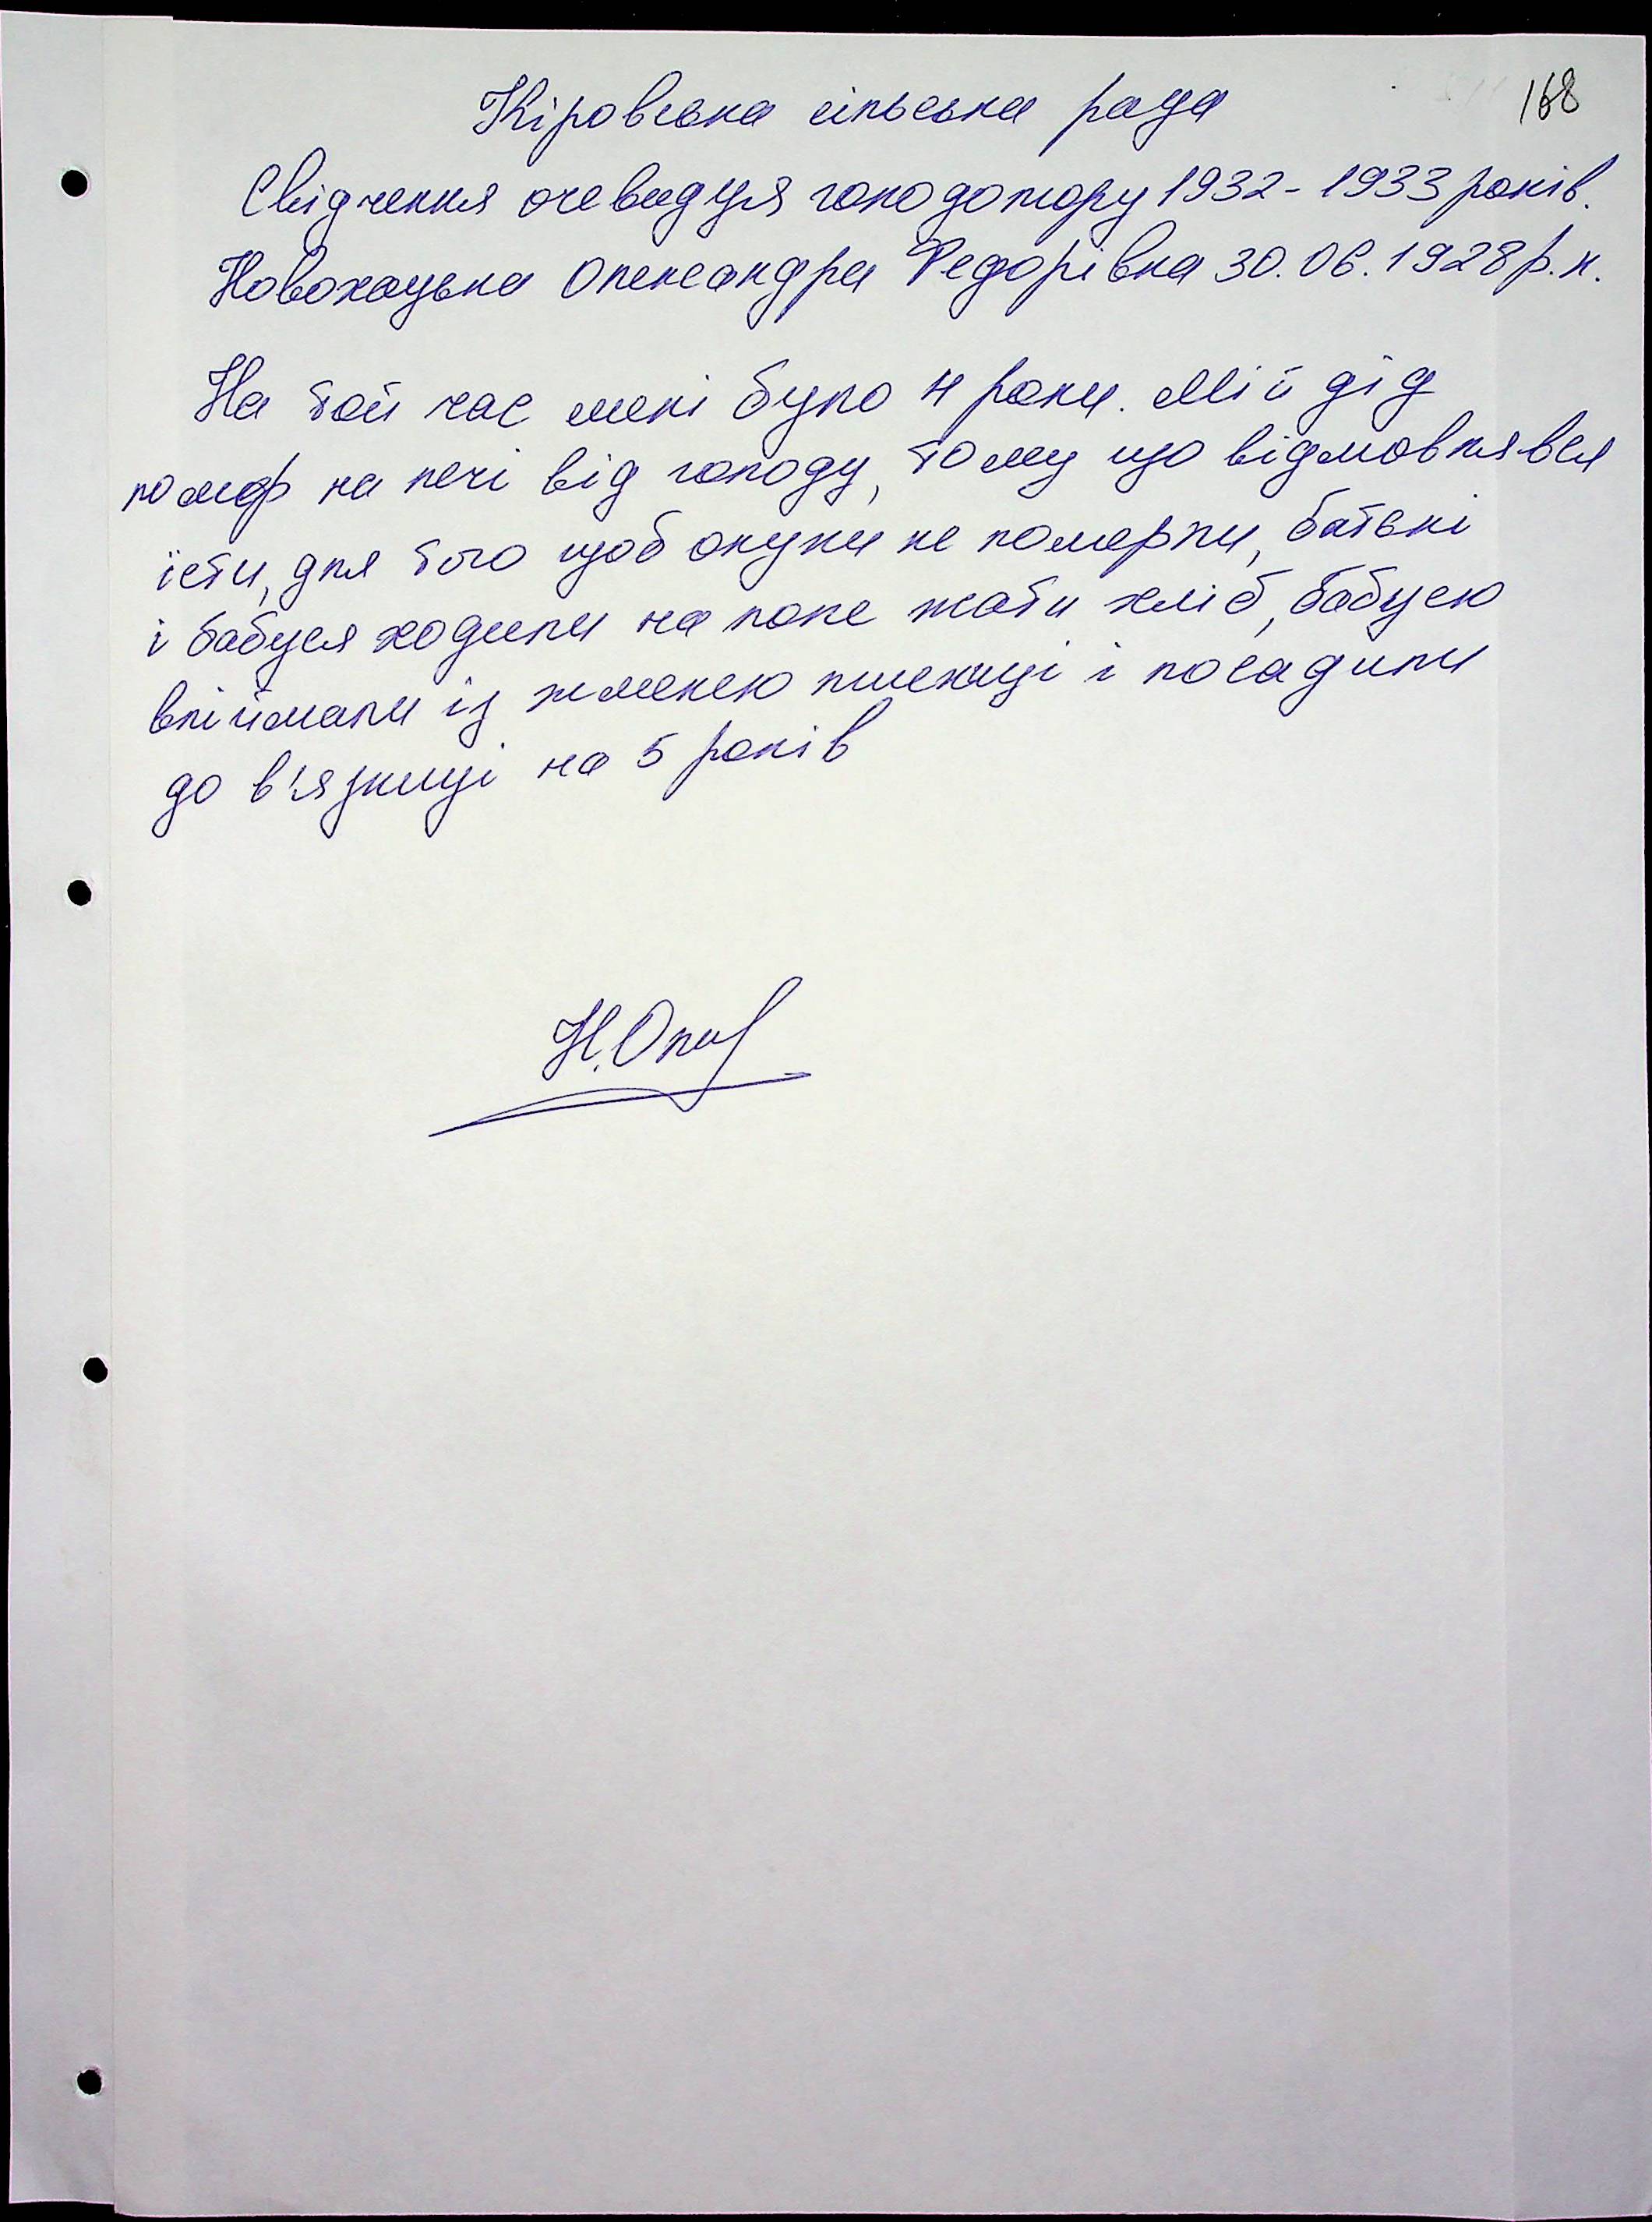 168
Кіровська сільська рада
Свідчення очевидця голодомору 1932-1933 років.
Новохацька Олександра Федорівна 30.06.1928 р.н.
На той час мені було 4 роки. Мій дід
помер на печі від голоду, тому що відмовлявся
їсти, для того щоб онуки не померли, батьки
і бабуся ходили на поле жати хліб, бабусю
впіймали із жменею пшениці і посадили
до в'язниці на 5 років